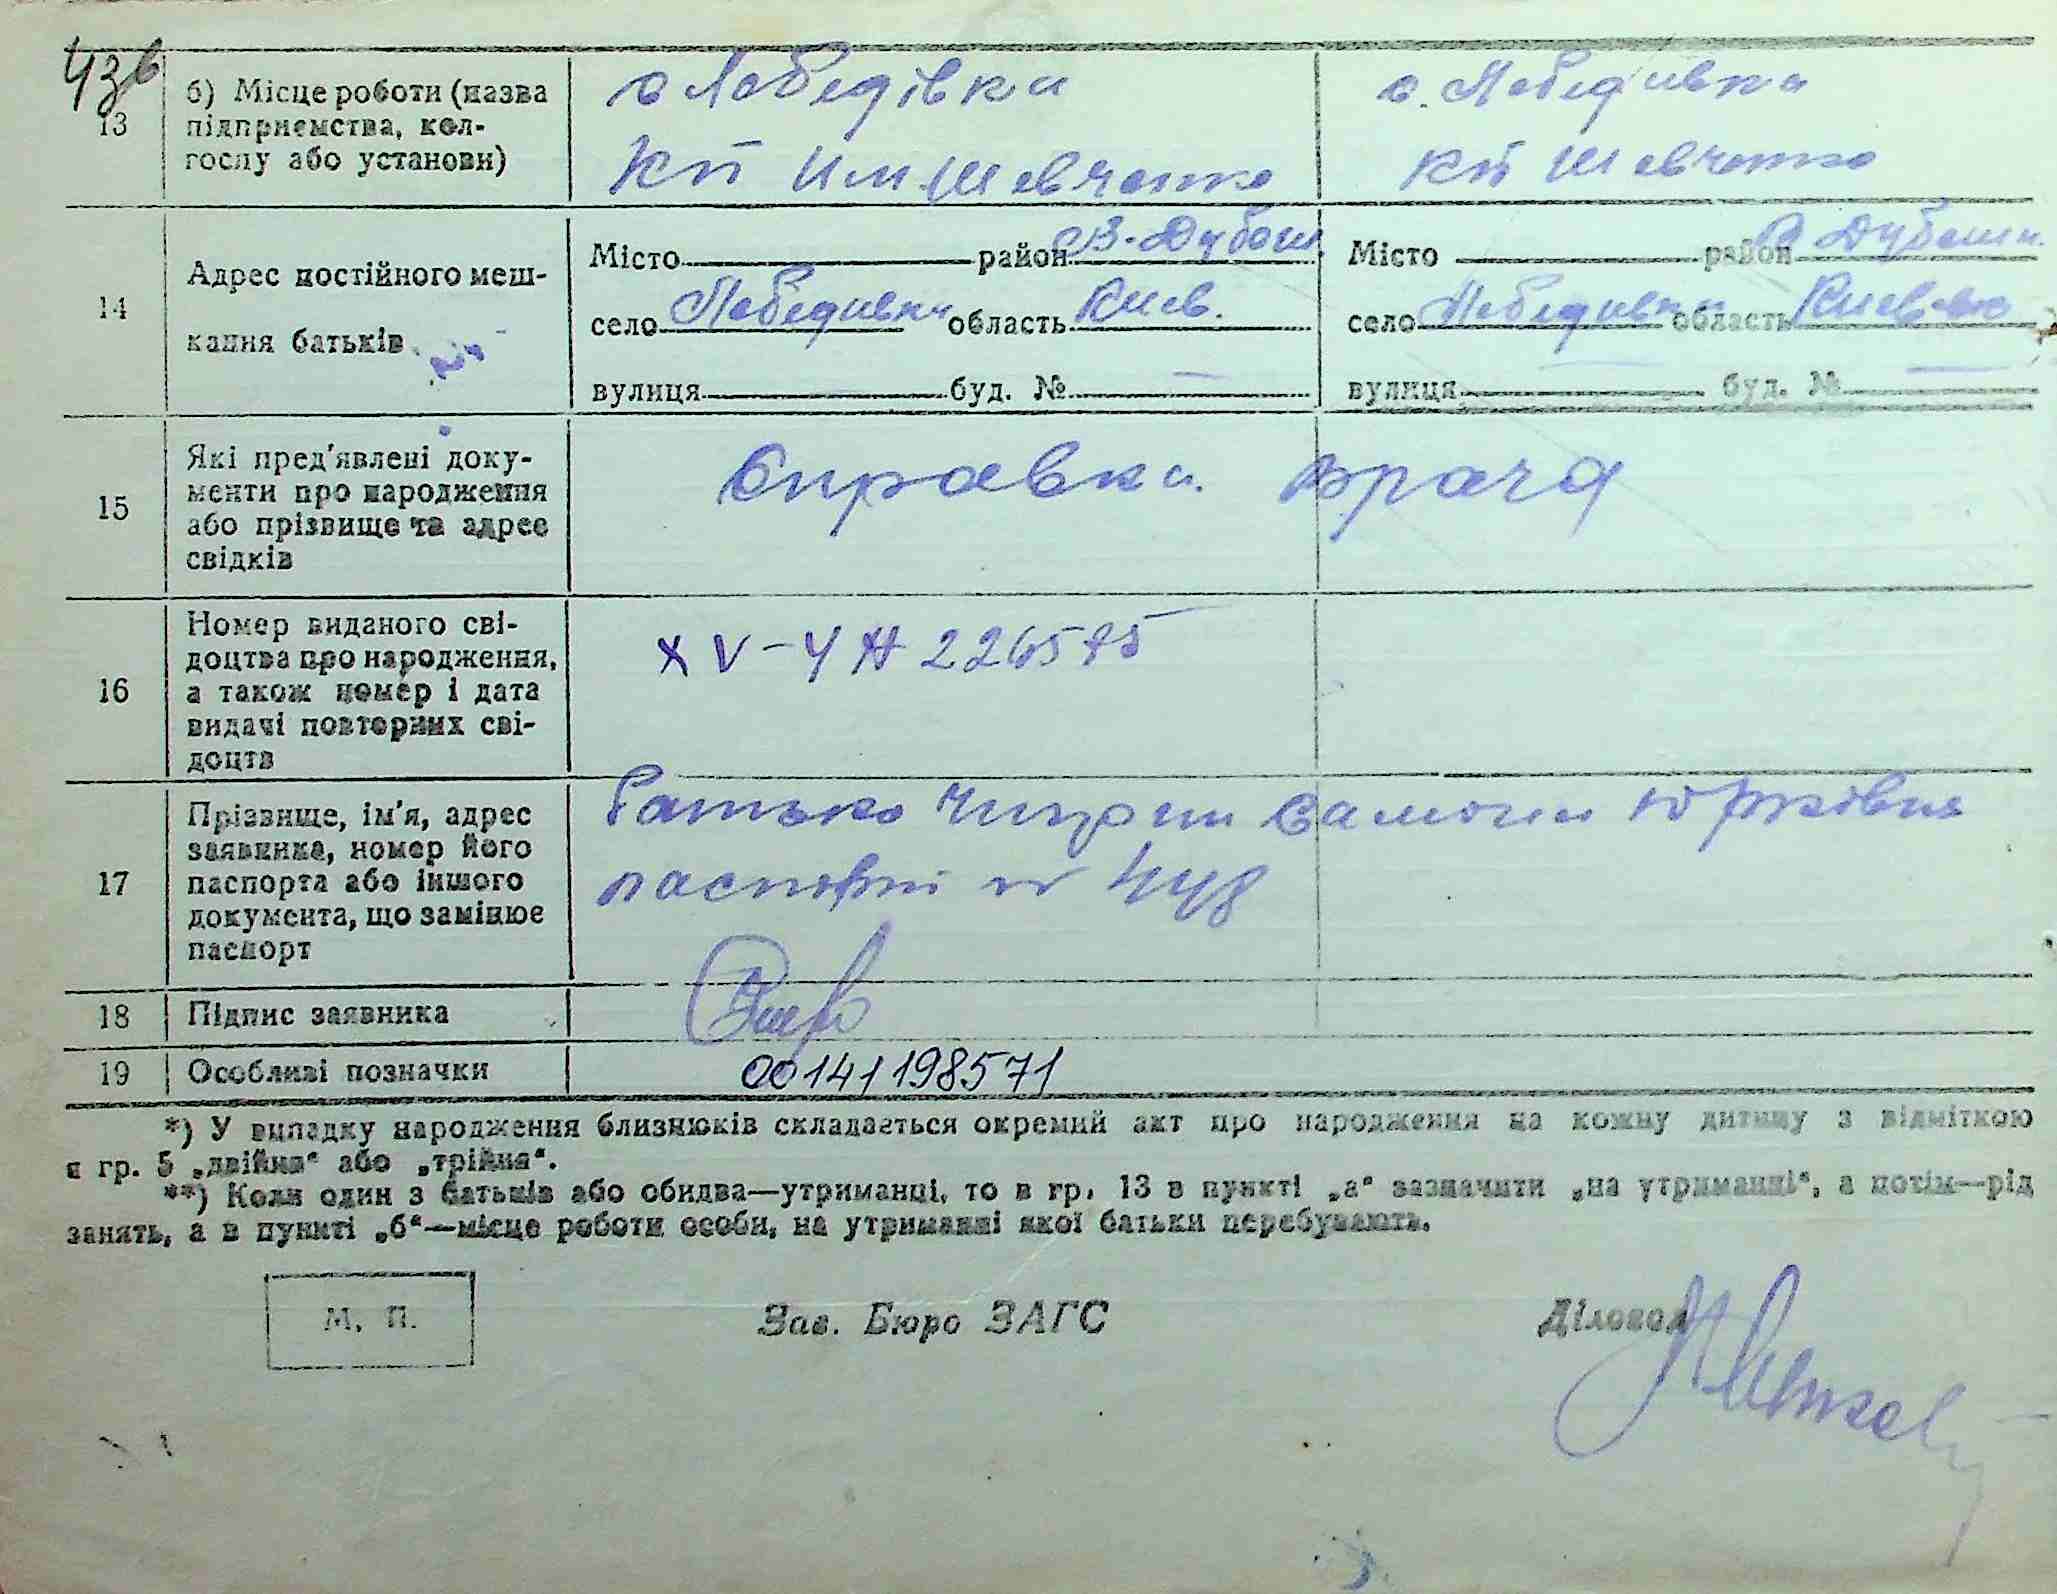 43б
13 б) Місце роботи (назва підприємства, колгоспу або установи)
с Лебедівка
Кп им Шевченко
с. Лебедивка
Кп Шевченко
14 Адрес постійного мешкання батьків
Місто район В-Дубечн
село Лебедивка область Киев.
вулиця буд. № —
Місто район В Дубечн.
село Лебедивка область Киевск
вулиця — буд. № —
15 Які пред'явлені документи про народження або прізвище та адрес свідків
Справка врача
16 Номер виданого свідоцтва про народження, а також номер і дата видачі повторних свідоцтв
XV-УН 226575
17 Прізвище, ім'я, адрес заявника, номер його паспорта або іншого документа, що замінює паспорт
батько
паспорт № 448
18 Підпис заявника
19 Особливі позначки
00141198571
*) У випадку народження близнюків складається окремий акт про народження на кожну дитину з відміткою
в гр. 5 „двійня“ або „трійня“.
**) Коли один з батьків або обидва—утриманці, то в гр. 13 в пункті „а“ зазначити „на утриманні“, а потім—рід
занять, а в пункті „б“—місце роботи особи, на утриманні якої батьки перебувають.
М. П.
Зав. Бюро ЗАГС
Діловод